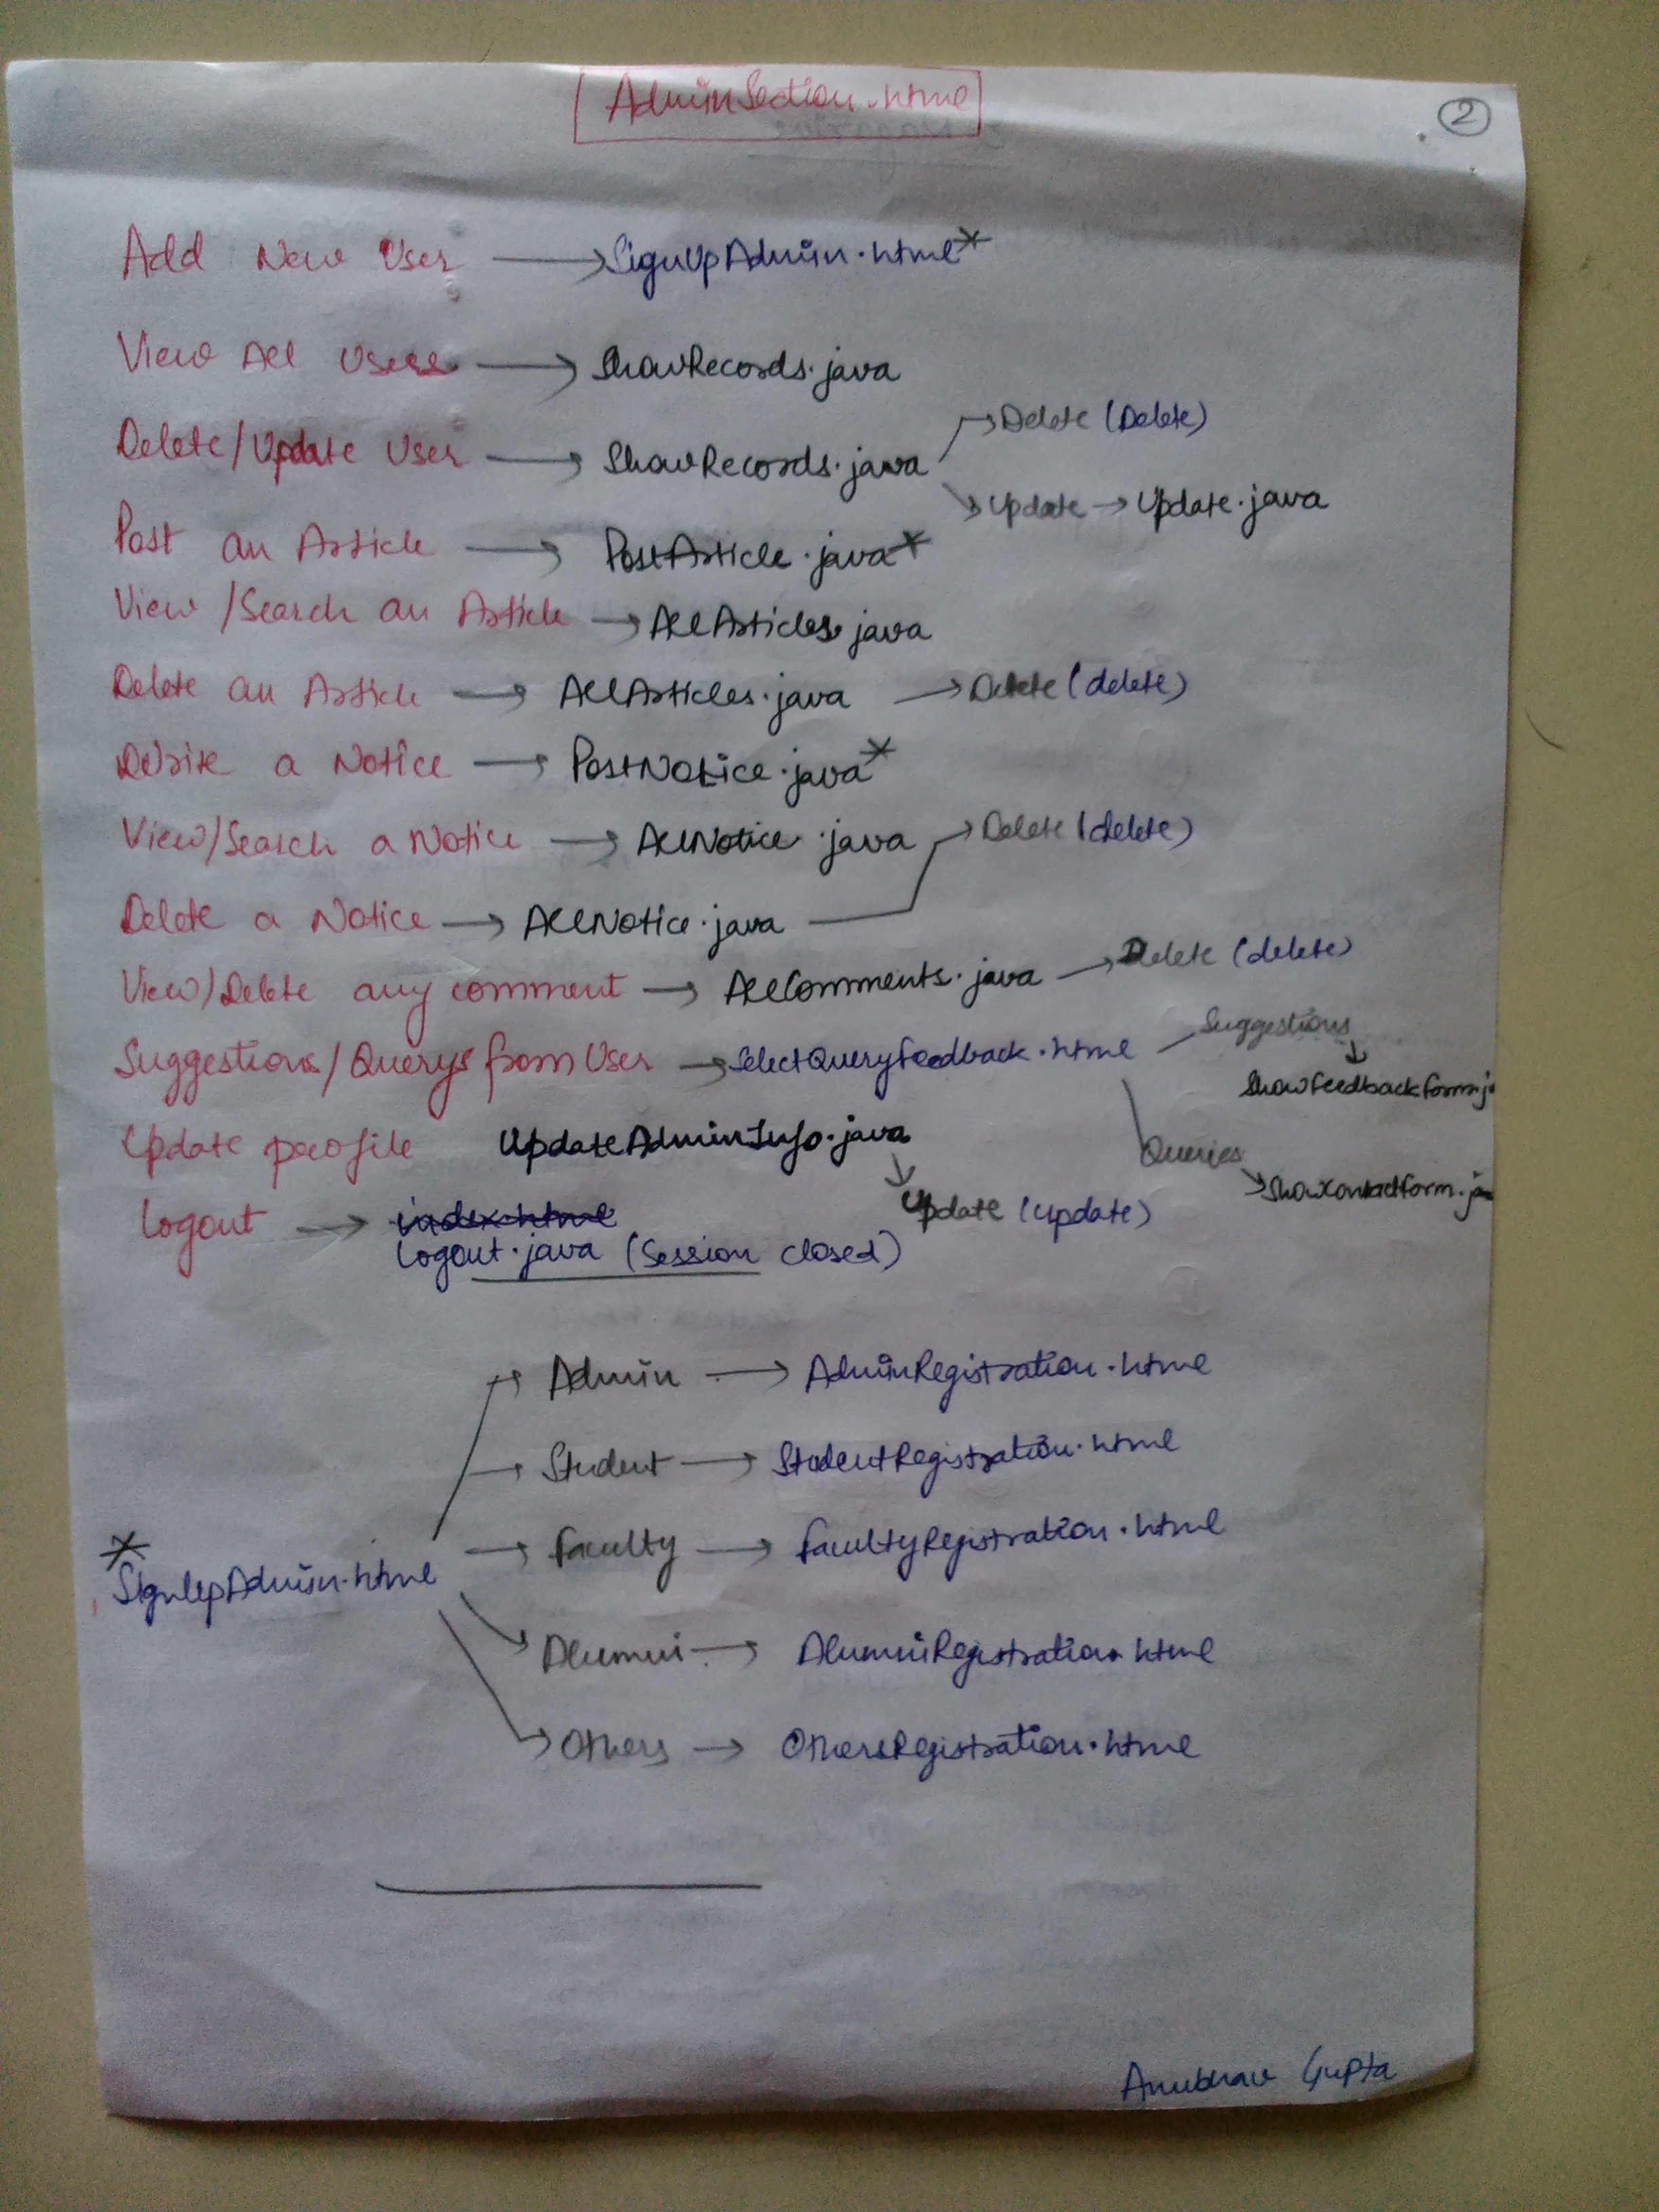 AdminSection.html
2
Add New User → SignUpAdmin.html*
View All Users → ShowRecords.java
Delete/Update User → ShowRecords.java → Delete (Delete)
→ Update → Update.java
Post an Article → PostArticle.java*
View/Search an Article → AllArticles.java
Delete an Article → AllArticles.java → Delete (delete)
Write a Notice → PostNotice.java*
View/Search a Notice → AllNotice.java → Delete (delete)
Delete a Notice → AllNotice.java
View/Delete any comment → AllComments.java → Delete (delete)
Suggestions/Querys from User → SelectQueryFeedback.html Suggestions
ShowFeedbackform.j
Update profile UpdateAdminInfo.java Queries
ShowContactform.ja
Update (update)
Logout → index.html
Logout.java (Session closed)
Admin → AdminRegistration.html
Student → StudentRegistration.html
Faculty → FacultyRegistration.html
*
SignUpAdmin.html
Alumni → AlumniRegistration.html
Others → OthersRegistration.html
Anubhav Gupta